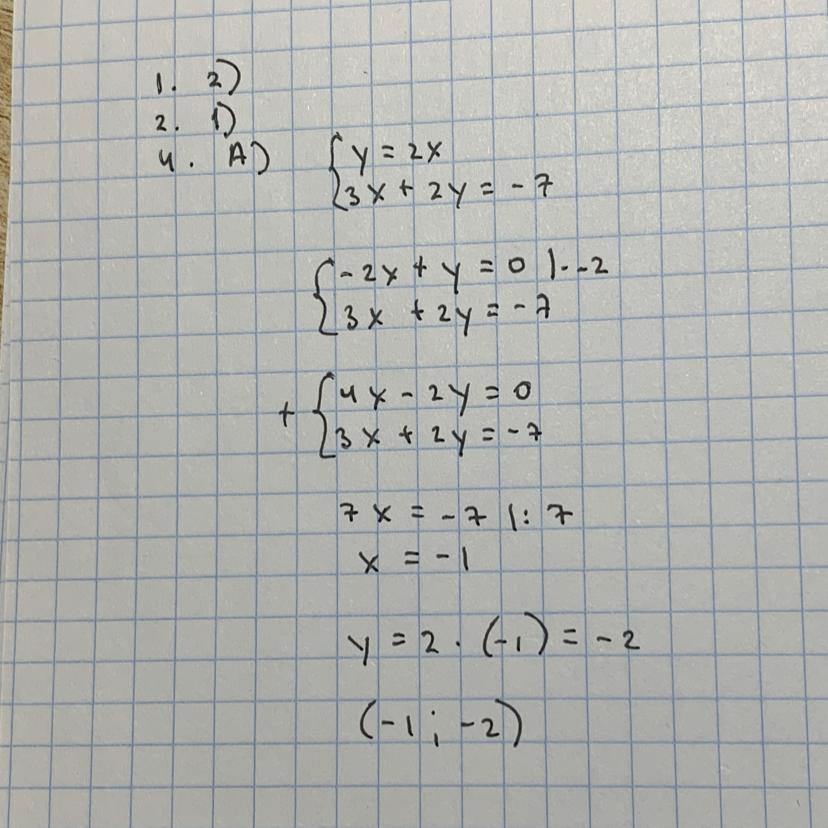 1. 2)
2. 1)
4. A) { y = 2x
3x + 2y = -7
{ -2x + y = 0 |· -2
3x + 2y = -7
+ { 4x - 2y = 0
3x + 2y = -7
7x = -7 |: 7
x = -1
y = 2 · (-1) = -2
(-1; -2)